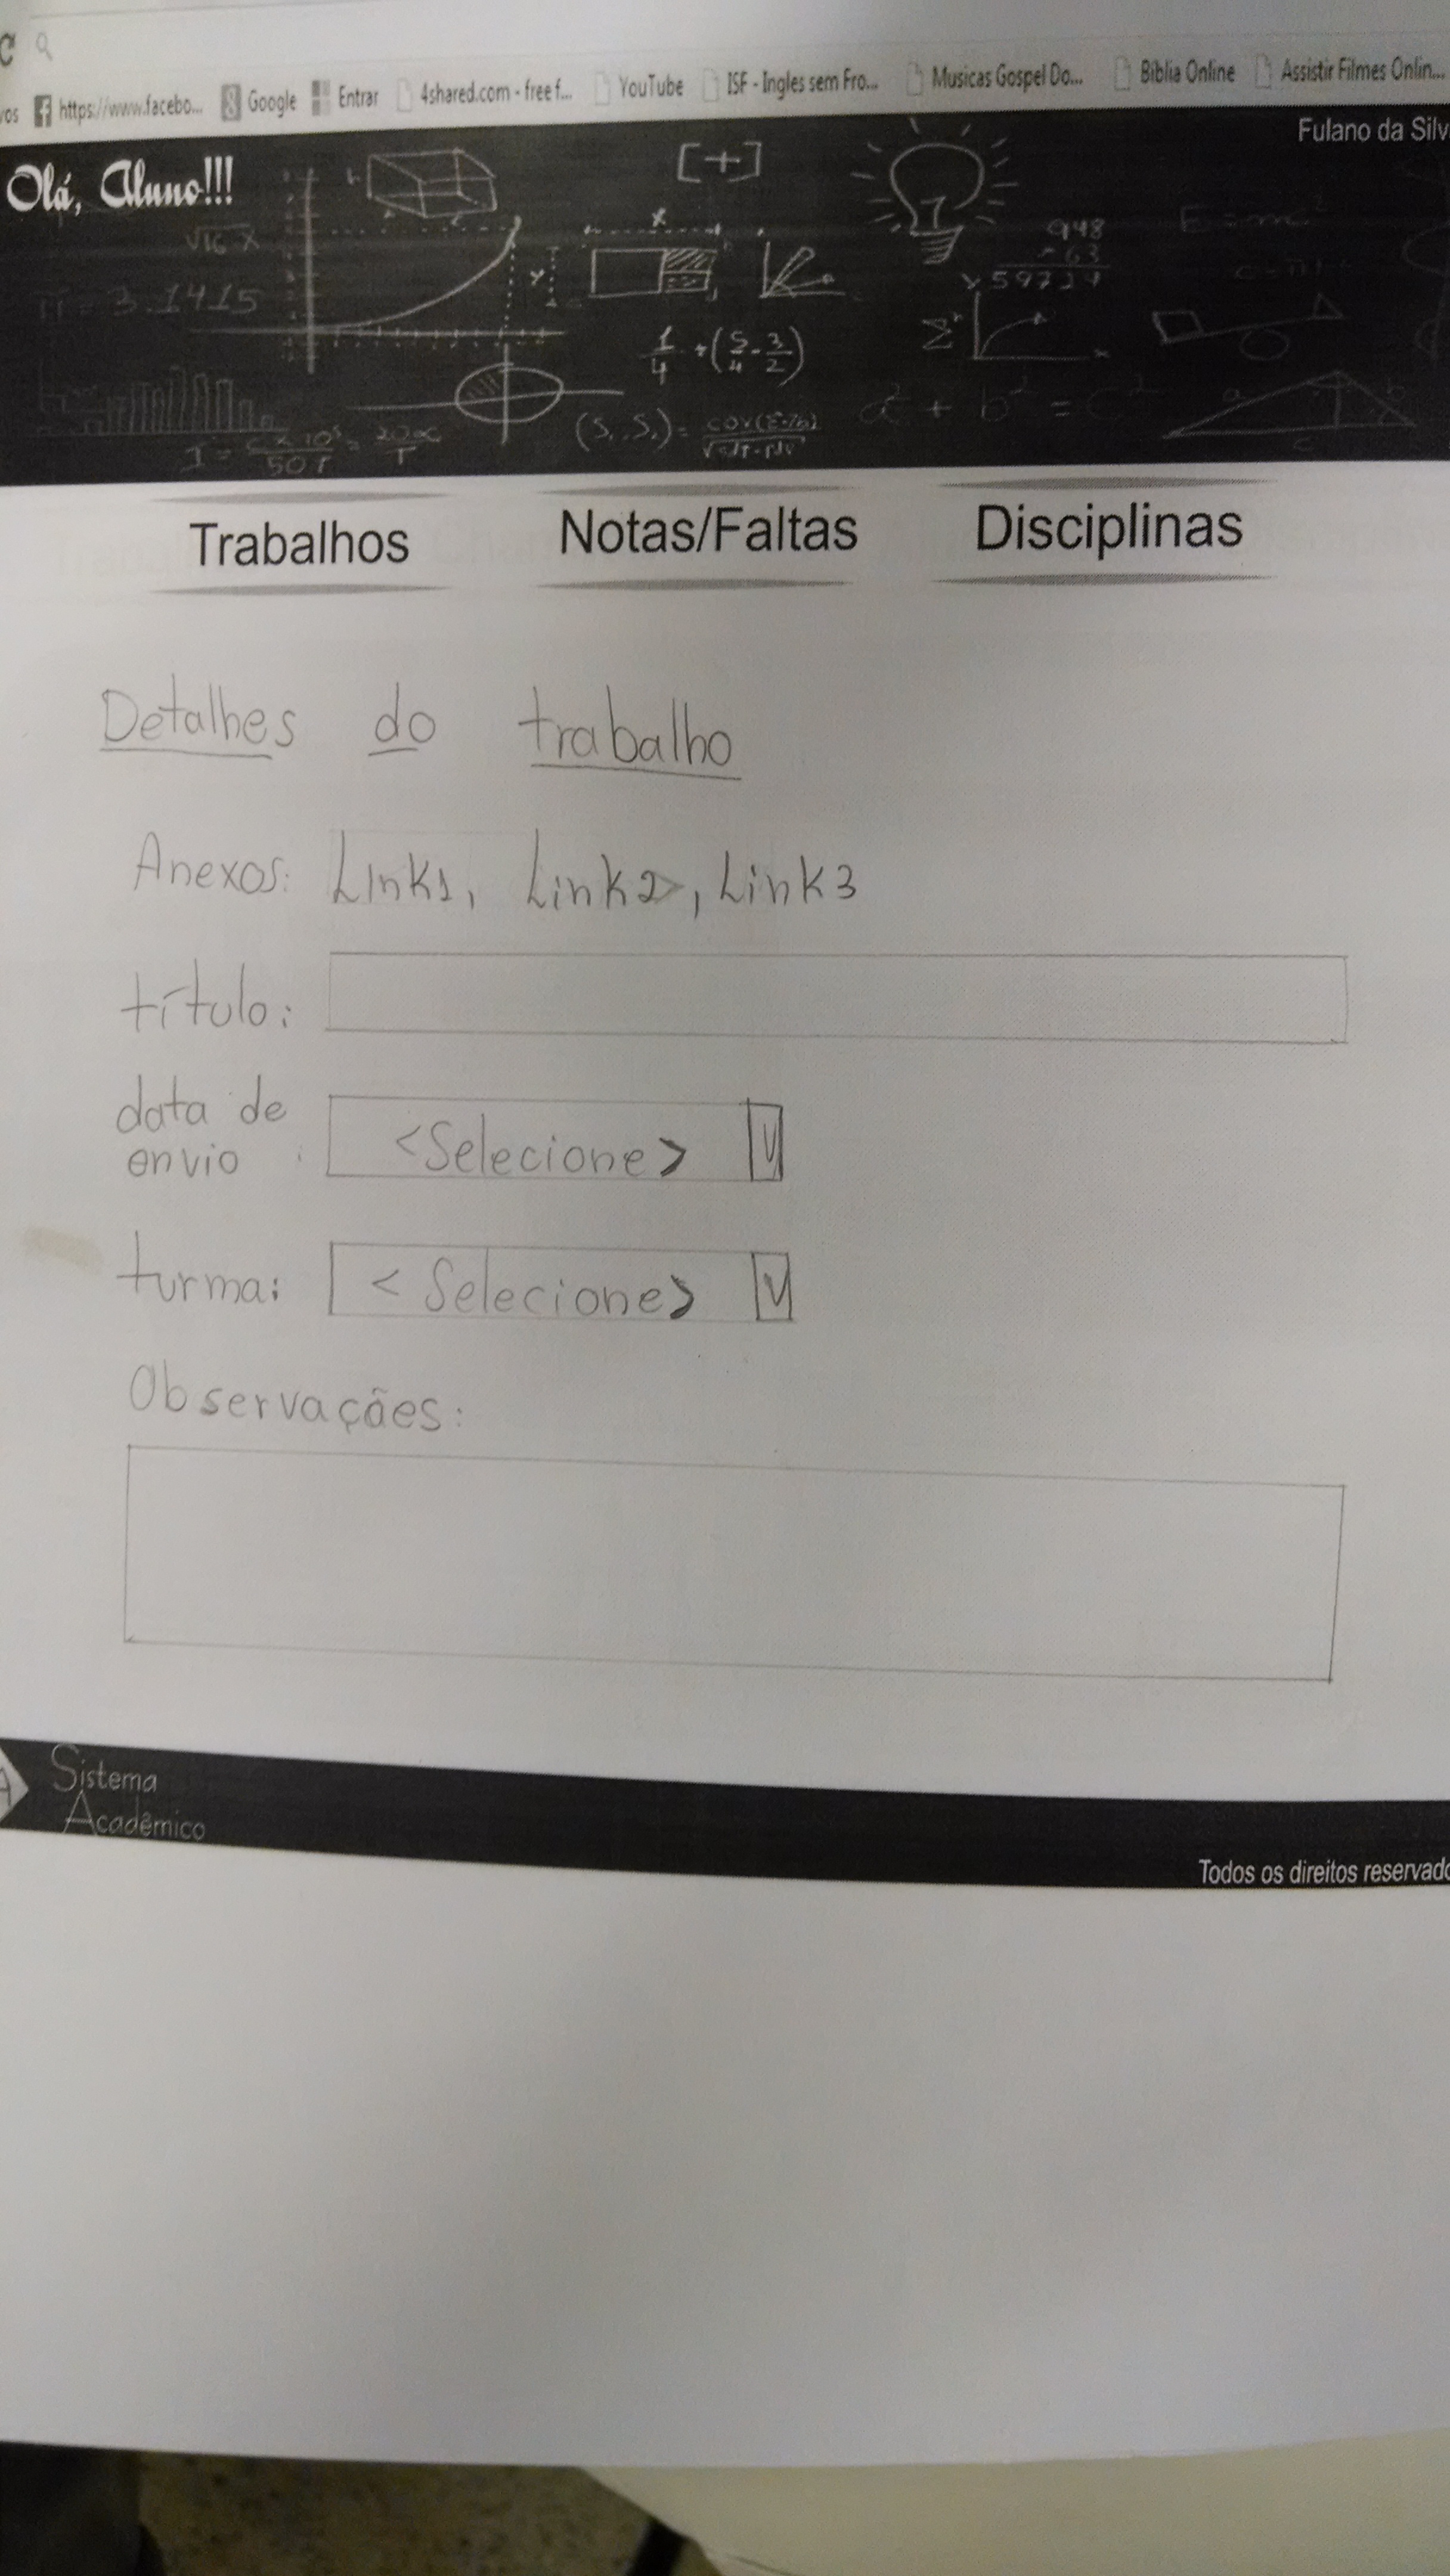 https://www.facebo... Google Entrar 4shared.com - free f... YouTube ISF - Ingles sem Fro... Musicas Gospel Do... Bíblia Online Assistir Filmes Onlin...
Fulano da Silv
Olá, Aluno!!!
[+]
√16 x
π = 3.1415
x
y
948
63
59724
E = mc²
1/4 + (5/4 - 3/2)
Σ
a² + b² = c²
a
b
c
Trabalhos Notas/Faltas Disciplinas
Detalhes do trabalho
Anexos: Link1, Link2, Link3
título:
data de
envio : <Selecione> V
turma: <Selecione> V
Observações:
Sistema
Acadêmico
Todos os direitos reservado